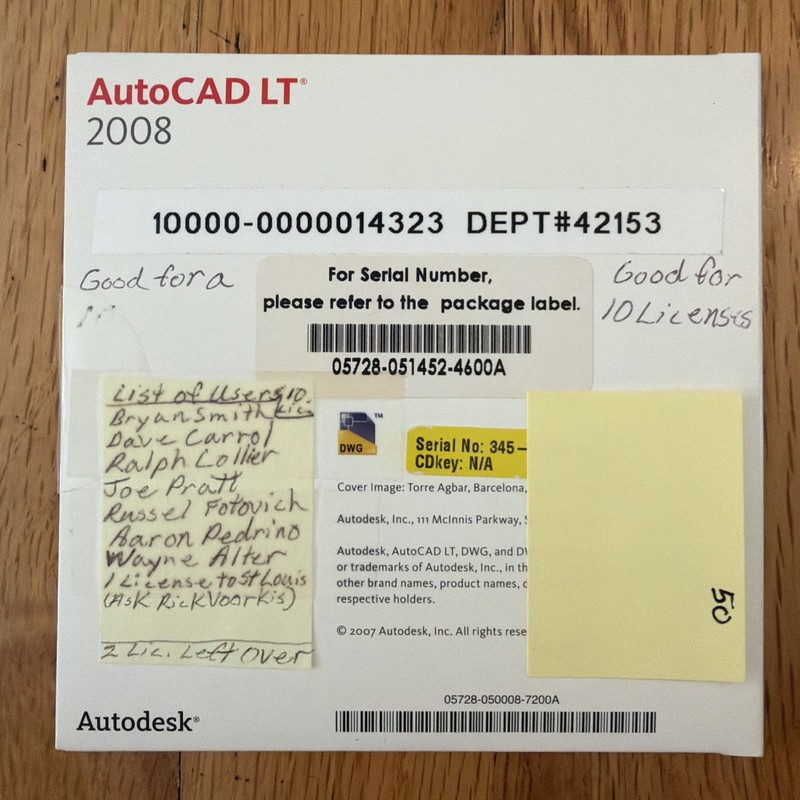 AutoCAD LT®
2008
10000-0000014323 DEPT#42153
Good for a
For Serial Number,
please refer to the package label.
05728-051452-4600A
Good for
10 Licenses
List of Users 10
Lic
Bryan Smith
Dave Carrol
Ralph Collier
Joe Pratt
Russel Fotovich
Aaron Pedrino
Wayne Alter
1 License to St Louis
(Ask Rick Voorkis)
2 Lic. Left Over
DWG™
Serial No: 345-
CDkey: N/A
Cover Image: Torre Agbar, Barcelona,
Autodesk, Inc., 111 McInnis Parkway,
Autodesk, AutoCAD LT, DWG, and
or trademarks of Autodesk, Inc., in th
other brand names, product names,
respective holders.
© 2007 Autodesk, Inc. All rights rese
50
05728-050008-7200A
Autodesk®